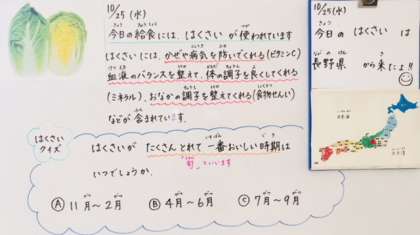 10/25 (水)
今日の給食には、はくさいが使われています
はくさいには、かぜや病気を防いでくれる(ビタミンC)
血液のバランスを整えて、体の調子を良くしてくれる
(ミネラル)、おなかの調子を整えてくれる(食物せんい)
などが含まれています。
はくさい
クイズ
はくさいが たくさんとれて 一番おいしい時期は
「旬」といいます
いつでしょうか。
Ⓐ 11月〜2月 Ⓑ 4月〜6月 Ⓒ 7月〜9月
10/25 (水)
今日の はくさい は
長野県 から来たよ!!